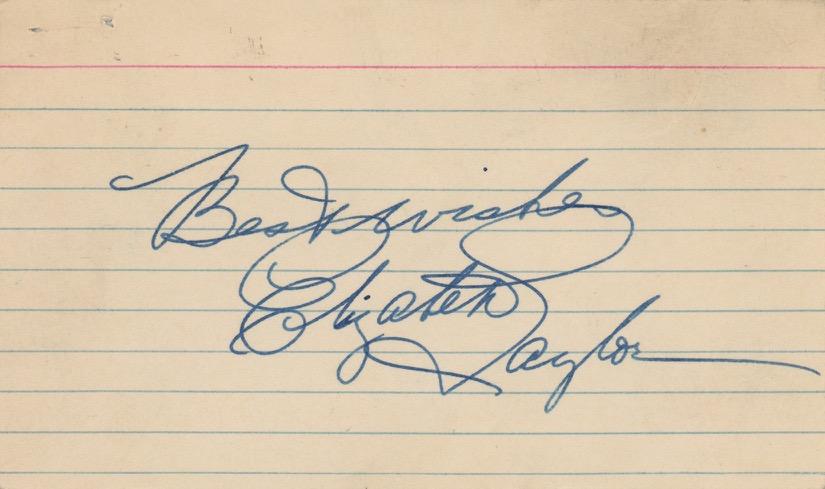 Best wishes
Elizabeth
Taylor